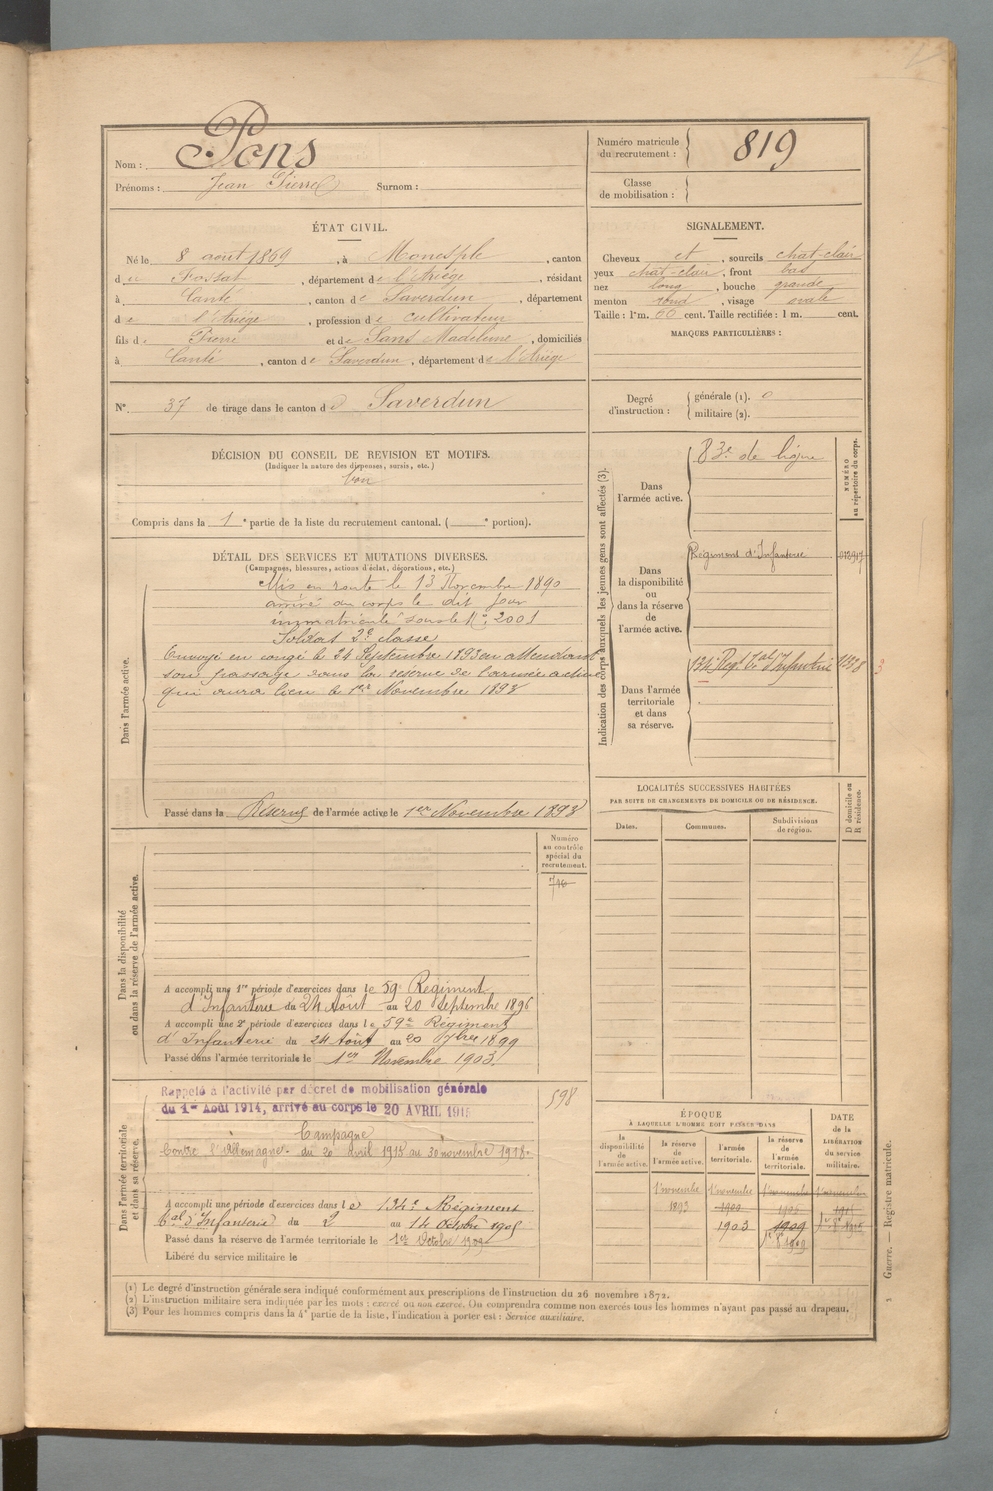 Nom : Pons
Prénoms : Jean Pierre Surnom :
Numéro matricule
du recrutement : 819
Classe
de mobilisation :
ÉTAT CIVIL.
Né le 8 août 1869, à Monesple, canton
du Fossat, département de l'Ariège, résidant
à Canté, canton de Saverdun, département
de l'Ariège, profession de cultivateur
fils de Pierre et de Sans Madeleine, domiciliés
à Canté, canton de Saverdun, département de l'Ariège
N° 37 de tirage dans le canton de Saverdun
SIGNALEMENT.
Cheveux et, sourcils chat-clair
yeux chat-clair, front bas
nez long, bouche grande
menton rond, visage ovale
Taille : 1m. 66 cent. Taille rectifiée : 1 m. cent.
MARQUES PARTICULIÈRES :
Degré
d'instruction :
générale (1). 0
militaire (2).
DÉCISION DU CONSEIL DE REVISION ET MOTIFS.
(Indiquer la nature des dispenses, sursis, etc.)
bon
Compris dans la 1e partie de la liste du recrutement cantonal. ( e portion).
DÉTAIL DES SERVICES ET MUTATIONS DIVERSES.
(Campagnes, blessures, actions d'éclat, décorations, etc.)
Dans l'armée active.
Mis en route le 13 Novembre 1890
arrivé au corps le dit jour
immatriculé sous le N° 2001
Soldat 2e classe
Envoyé en congé le 24 Septembre 1893 en attendant
son passage dans la réserve de l'armée active
qui aura lieu le 1er Novembre 1893
Passé dans la Réserve de l'armée active le 1er Novembre 1893
Indication des corps auxquels les jeunes gens sont affectés (3).
NUMÉRO
au répertoire du corps.
Dans
l'armée active.
83e de ligne
Dans
la disponibilité
ou
dans la réserve
de
l'armée active.
Régiment d'Infanterie
Dans l'armée
territoriale
et dans
sa réserve.
134 Reg. Tal d'Infanterie
LOCALITÉS SUCCESSIVES HABITÉES
PAR SUITE DE CHANGEMENTS DE DOMICILE OU DE RÉSIDENCE.
Dates. Communes. Subdivisions
de région.
D domicile ou
R résidence.
Dans la disponibilité
ou dans la réserve de l'armée active.
Numéro
au contrôle
spécial du
recrutement.
A accompli une 1re période d'exercices dans le 59e Régiment
d'Infanterie du 24 Août au 20 Septembre 1896
A accompli une 2e période d'exercices dans le 59e Régiment
d'Infanterie du 24 Août au 20 7bre 1899
Passé dans l'armée territoriale le 1er Novembre 1903
Dans l'armée territoriale
et dans sa réserve.
598
Rappelé à l'activité par décret de mobilisation générale
du 1er Août 1914, arrivé au corps le 20 AVRIL 1915
Campagne
Contre l'Allemagne. du 20 Avril 1915 au 30 novembre 1918.
A accompli une période d'exercices dans le 134e Régiment
Tal d'Infanterie du 2 au 14 Octobre 1905
Passé dans la réserve de l'armée territoriale le 1er Octobre 1909
Libéré du service militaire le
ÉPOQUE
À LAQUELLE L'HOMME DOIT PASSER DANS
DATE
de la
LIBÉRATION
du service
militaire.
la
disponibilité
de
l'armée active.
la réserve
de
l'armée active.
l'armée
territoriale.
la réserve
de
l'armée
territoriale.
1er novembre 1er novembre 1er novembre 1er novembre
1893 1900
1903 1909
Guerre. — Registre matricule.
(1) Le degré d'instruction générale sera indiqué conformément aux prescriptions de l'instruction du 26 novembre 1872.
(2) L'instruction militaire sera indiquée par les mots : exercé ou non exercé. On comprendra comme non exercés tous les hommes n'ayant pas passé au drapeau.
(3) Pour les hommes compris dans la 4e partie de la liste, l'indication à porter est : Service auxiliaire.